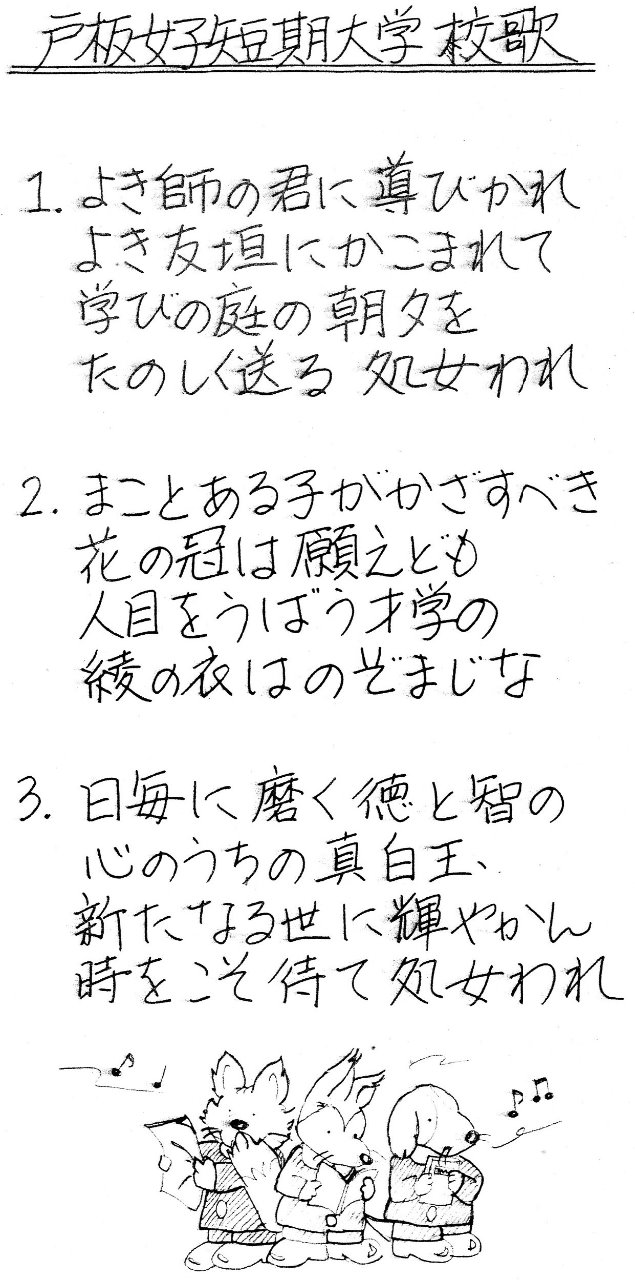 戸板女子短期大学 校歌
1. よき師の君に導びかれ
よき友垣にかこまれて
学びの庭の朝夕を
たのしく送る 処女われ
2. まことある子がかざすべき
花の冠は願えども
人目をうばう才学の
綾の衣はのぞまじな
3. 日毎に磨く徳と智の
心のうちの真白玉、
新たなる世に輝やかん
時をこそ待て処女われ